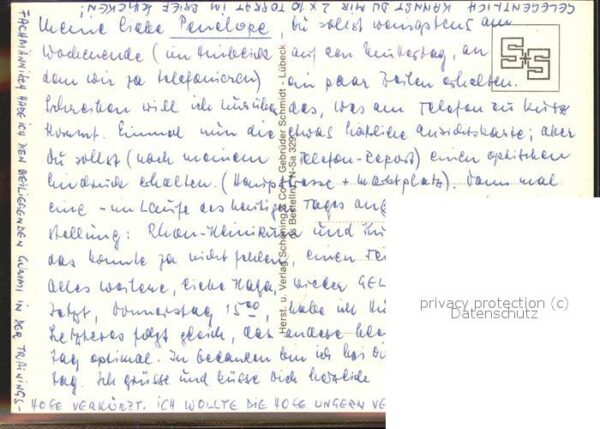 GELEGENTLICH KANNST DU MIR 2 x 10 IM BRIEF SCHICKEN!
Meine liebe Penelope, Du sollst wenigstens am
Wochenende (im Hinblick auf den Muttertag, an
dem wir ja telefonieren) ein paar Zeilen erhalten.
Schreiben will ich nur über das, was am Telefon zu kurz
kommt. Einmal nun die etwas hässliche Ansichtskarte; aber
Du sollst (nach meinem Telefon-Report) einen optischen
Eindruck erhalten. (Hauptstrasse + Marktplatz). Dann mal
eine - im Laufe des heutigen Tages
stellung: Rhein- und
das könnte ja nicht fehlen, einen
Alles weitere, liebe wieder GEL
Jetzt, Donnerstag 15 00, habe ich
Letzteres folgt gleich, das andere
Tag optimal. In Gedanken bin ich bei Di
tag. Ich grüsse und küsse Dich herzlich
FACHMÄNNISCH HABE ICH DEN BEILIEGENDEN GUMMI IN DER TRAININGS-
HOSE VERKÜRZT. ICH WOLLTE DIE HOSE UNGERN VE
Herst. u. Verlag Schöning & Co + Gebrüder Schmidt - Lübeck
Bestellnr. N-Sa 329
S+S
privacy protection (c)
Datenschutz